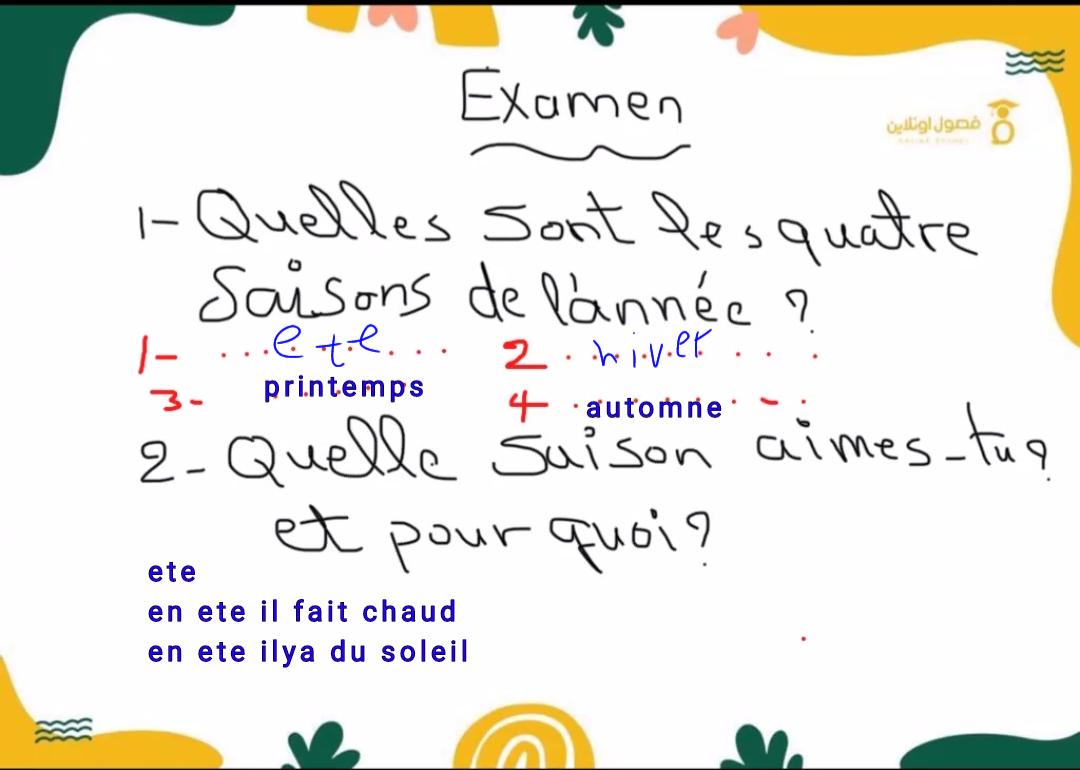 Examen
فصول اونلاين
1- Quelles sont les quatre
saisons de l'année ?
1- ... ete ... 2 . hiver . . .
3- printemps 4 . automne . - .
2- Quelle saison aimes-tu?
et pourquoi?
ete
en ete il fait chaud
en ete ilya du soleil